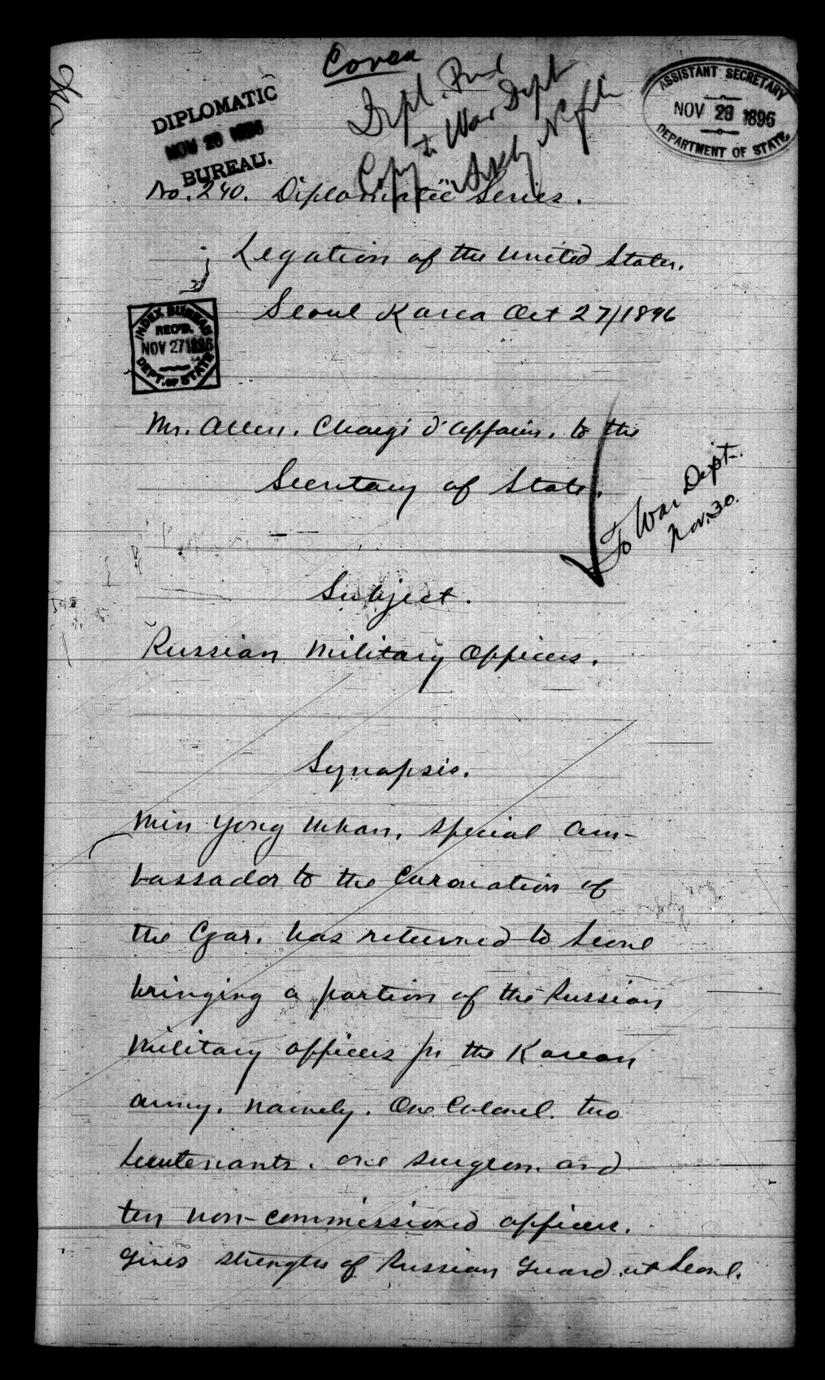 Corea
DIPLOMATIC
NOV 28 1896
BUREAU.
Copy to War Dept
ASSISTANT SECRETARY
NOV 28 1896
DEPARTMENT OF STATE.
No. 240. Diplomatic Series.
Legation of the United States.
Seoul Korea Oct 27/1896
INDEX BUREAU
REC'D.
NOV 27 1896
DEPT. OF STATE
Mr. Allen. Chargé d'affaires. to the
Secretary of State.
To War Dept.
Nov. 30.
Subject.
Russian Military Officers.
Synopsis.
Min Yong Whan, special am-
bassador to the Coronation of
the Czar, has returned to Seoul
bringing a portion of the Russian
Military officers for the Korean
army. namely. One Colonel. two
lieutenants. one surgeon. and
ten non-commissioned officers.
Gives strength of Russian Guard at Seoul.